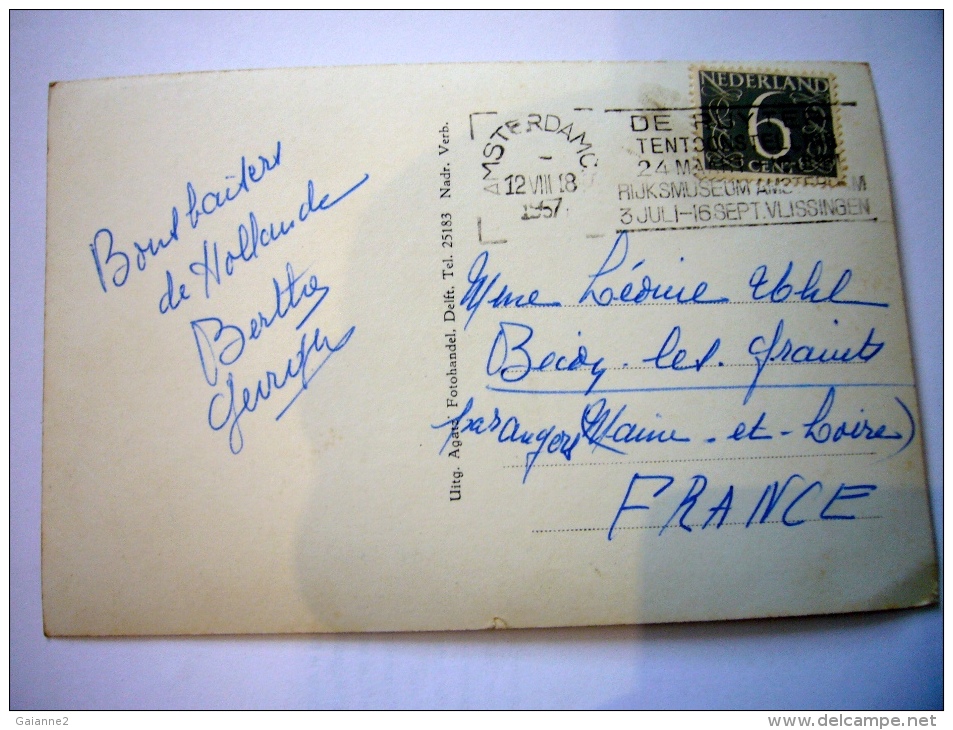 Bons baisers
de Hollande
Berthe
Uitg. Agata, Fotohandel, Delft. Tel. 25183 Nadr. Verb.
AMSTERDAM C
12 VIII 18
1957
NEDERLAND
6
CENT
DE
TENTOONSTEL
24 MA
RIJKSMUSEUM AMSTERDAM
3 JULI-16 SEPT. VLISSINGEN
Mme Léonie
les
par Angers (Maine-et-Loire)
FRANCE
Gaianne2
www.delcampe.net